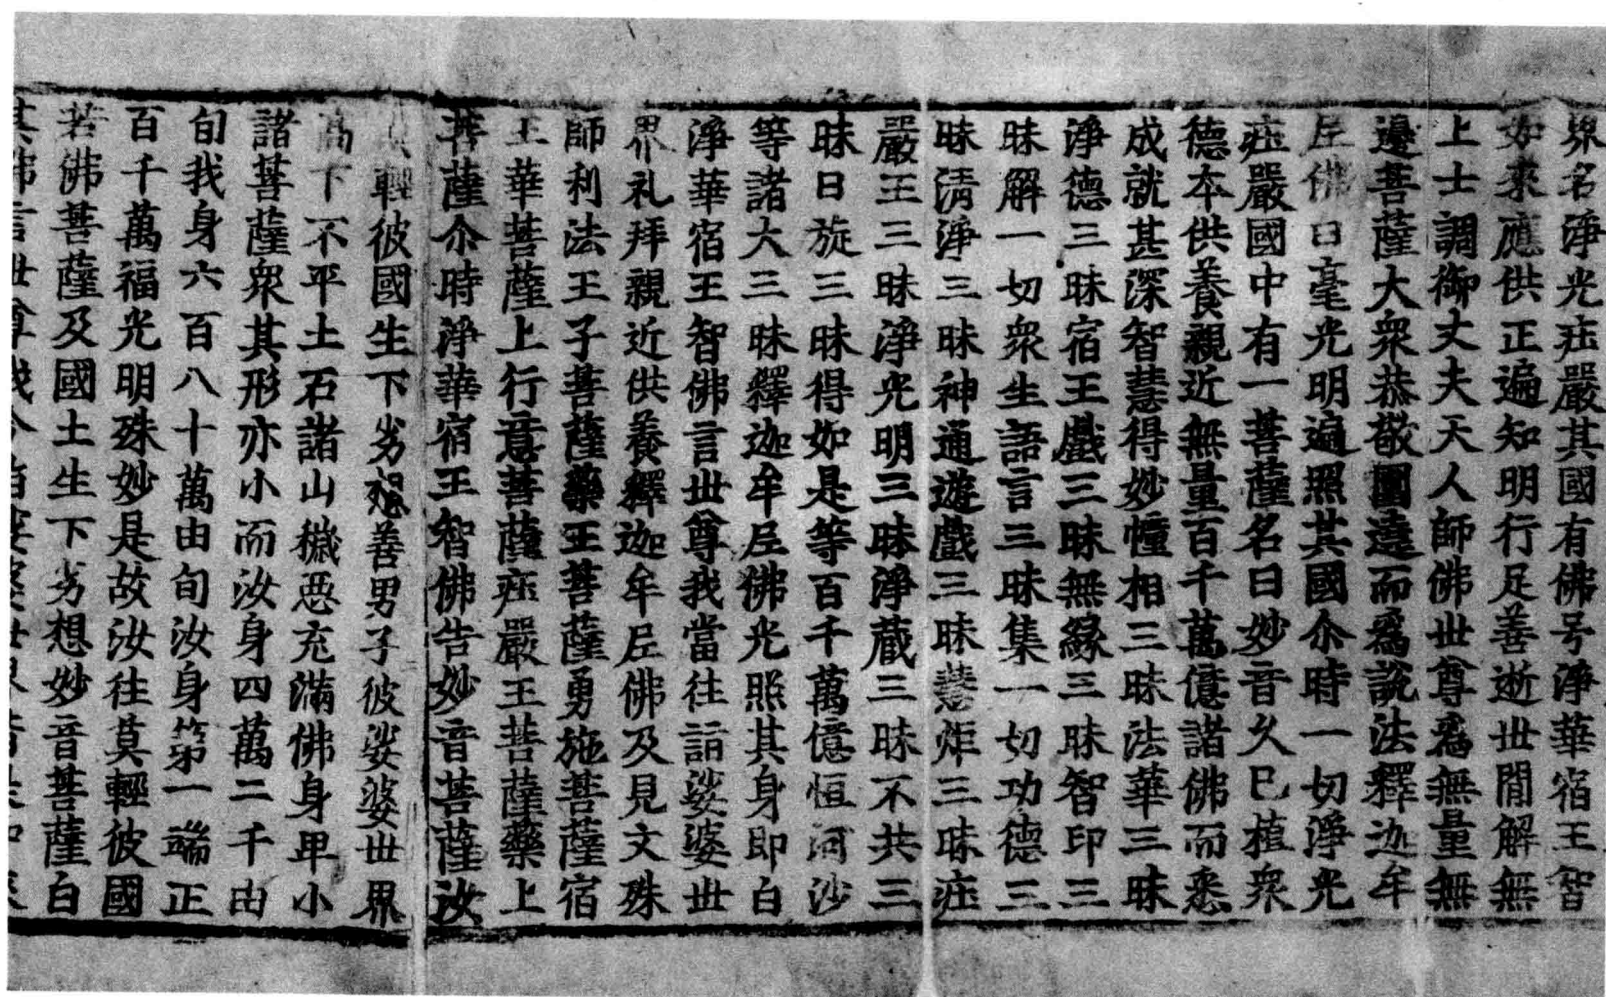 界名淨光㽵嚴其國有佛号淨華宿王智
如來應供正遍知明行足善逝世間解無
上士調御丈夫天人師佛世尊爲無量無
邊菩薩大衆恭敬圍遶而爲說法釋迦牟
𡰱佛白毫光明遍照其國尒時一切淨光
㽵嚴國中有一菩薩名曰妙音久已植衆
德本供養親近無量百千萬億諸佛而悉
成就甚深智慧得妙幢相三昧法華三昧
淨德三昧宿王戲三昧無緣三昧智印三
昧解一切衆生語言三昧集一切功德三
昧清淨三昧神通遊戲三昧慧炬三昧㽵
嚴王三昧淨光明三昧淨藏三昧不共三
昧日旋三昧得如是等百千萬億恒河沙
等諸大三昧釋迦牟𡰱佛光照其身即白
淨華宿王智佛言世尊我當往詣娑婆世
界礼拜親近供養釋迦牟𡰱佛及見文殊
師利法王子菩薩藥王菩薩勇施菩薩宿
王華菩薩上行意菩薩㽵嚴王菩薩藥上
菩薩尒時淨華宿王智佛告妙音菩薩汝
輕彼國生下劣想善男子彼娑婆世界
高下不平土石諸山穢惡充滿佛身卑小
諸菩薩衆其形亦小而汝身四萬二千由
旬我身六百八十萬由旬汝身第一端正
百千萬福光明殊妙是故汝往莫輕彼國
若佛菩薩及國土生下劣想妙音菩薩白
其佛言世尊我今詣娑婆世界